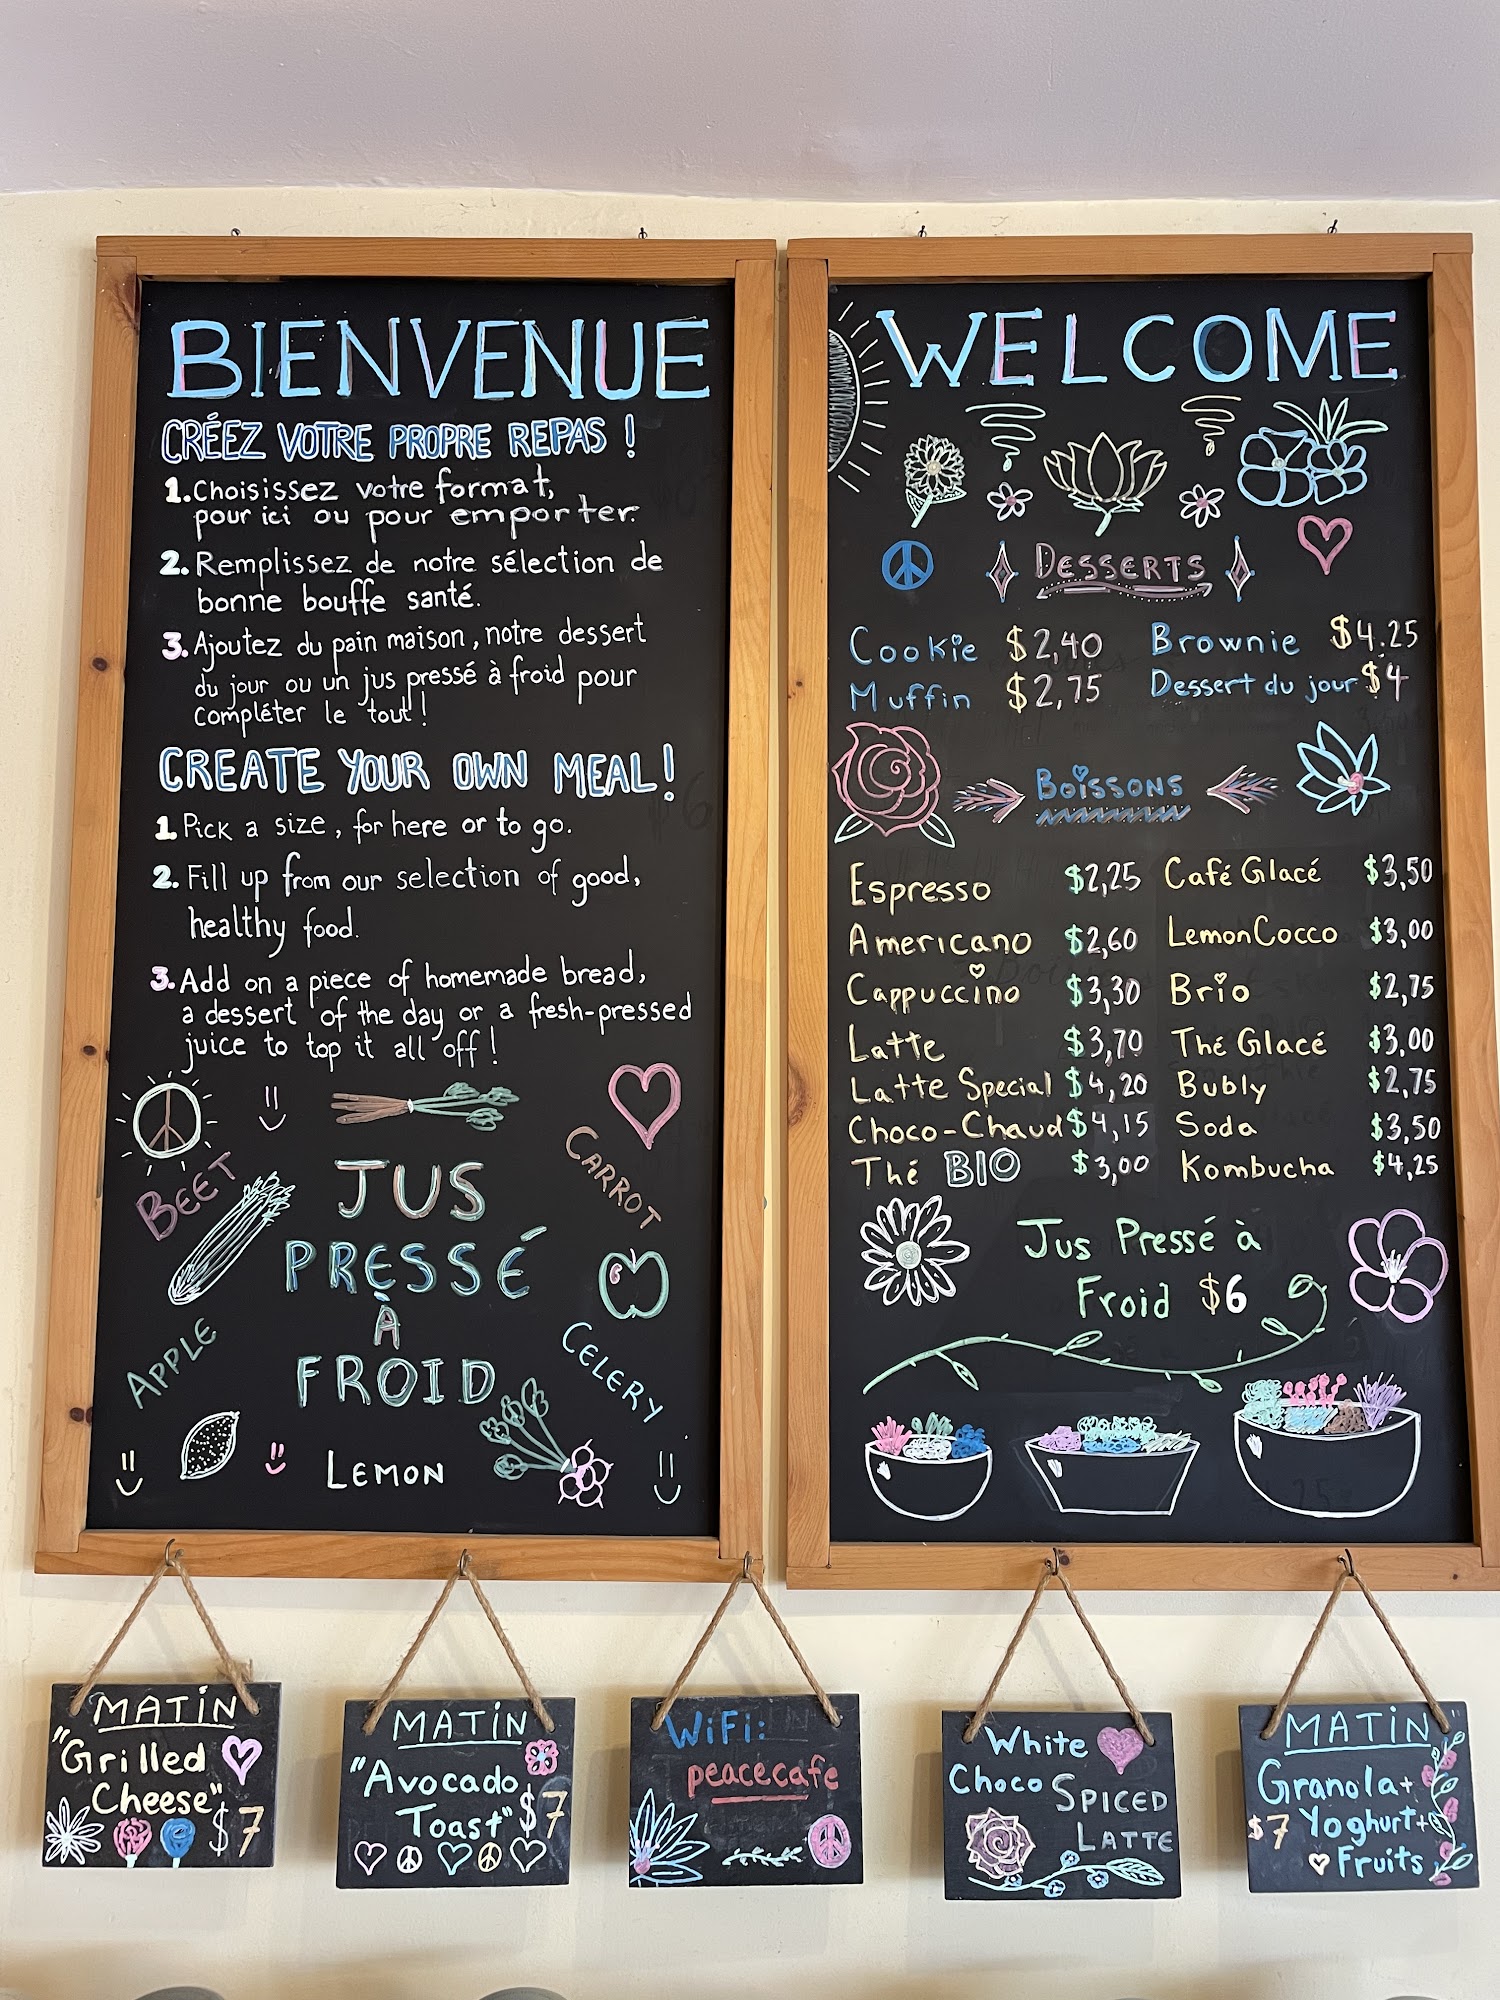 BIENVENUE
CRÉEZ VOTRE PROPRE REPAS !
1. Choisissez votre format,
pour ici ou pour emporter.
2. Remplissez de notre sélection de
bonne bouffe santé.
3. Ajoutez du pain maison, notre dessert
du jour ou un jus pressé à froid pour
compléter le tout !
CREATE YOUR OWN MEAL!
1. Pick a size, for here or to go.
2. Fill up from our selection of good,
healthy food.
3. Add on a piece of homemade bread,
a dessert of the day or a fresh-pressed
juice to top it all off !
BEET
CARROT
JUS
PRESSÉ
À
FROID
APPLE
CELERY
LEMON
WELCOME
DESSERTS
Cookie $2,40 Brownie $4.25
Muffin $2,75 Dessert du jour $4
BOISSONS
Espresso $2,25 Café Glacé $3,50
Americano $2,60 LemonCocco $3,00
Cappuccino $3,30 Brio $2,75
Latte $3,70 Thé Glacé $3,00
Latte Special $4,20 Bubly $2,75
Choco-Chaud $4,15 Soda $3,50
Thé BIO $3,00 Kombucha $4,25
Jus Pressé à
Froid $6
MATIN
"Grilled
Cheese" $7
MATIN
"Avocado
Toast" $7
WiFi:
peacecafe
White
Choco SPICED
LATTE
MATIN
Granola+
$7 Yoghurt+
Fruits